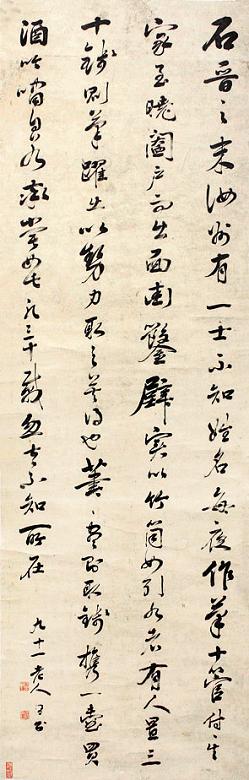 石晉之末汝州有一士不知姓名每夜作筆十管付其
家至曉闔戶而出面街鑿壁實以竹筒如引水者有人置三
十錢則筆躍出以勢力取之莫得也筆盡則取錢攜一壺買
酒吟嘯自嘗如此凡三十載忽去不知所在
九十一老人